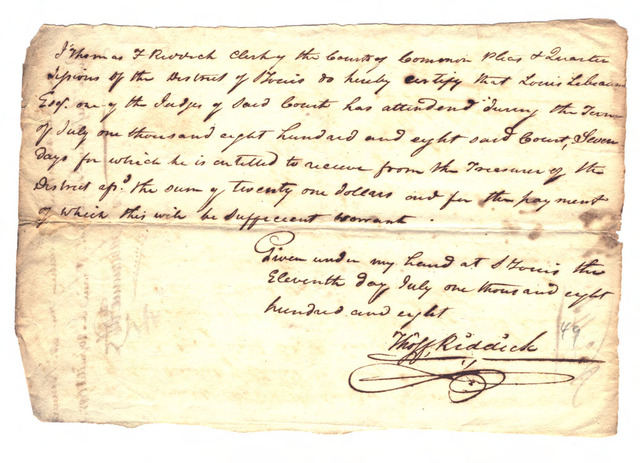 I Thomas F Riddick Clerk of the Court of Common Pleas & Quarter
sessions of the District of St Louis do hereby certify that Louis Lebeaum
Esqr. one of the Judges of Said Court has attendend during the Term
of July one thousand eight hundred and eight said Court, Seven
days for which he is entitled to receive from the Treasurer of the
District afsd. the sum of twenty one dollars and for the payment
of which this will be Suffecient warrant.
Given under my hand at St Louis this
Eleventh day July one thousand eight
hundred and eight
Tho F. Riddick
49